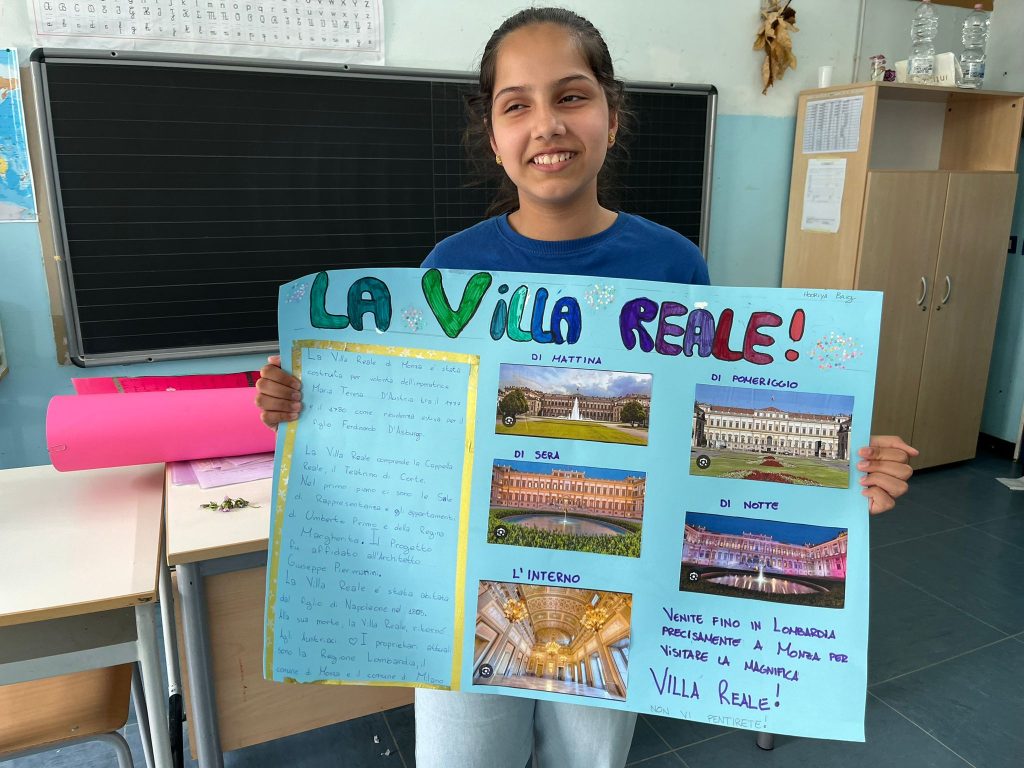 LA VILLA REALE!
Hooriya Baig
La Villa Reale di Monza è stata
costruita per volontà dell'imperatrice
Maria Teresa D'Austria tra il 1777
e il 1780 come residenza estiva per il
figlio Ferdinando D'Asburgo.
La Villa Reale comprende la Cappella
Reale, il Teatrino di Corte.
Nel primo piano ci sono le Sale
di Rappresentanza e gli appartamenti
di Umberto Primo e della Regina
Margherita. Il Progetto
fu affidato all'Architetto
Giuseppe Piermarini.
La Villa Reale è stata abitata
dal figlio di Napoleone nel 1805.
Alla sua morte, la Villa Reale, ritornò
agli Austriaci. I proprietari attuali
sono la Regione Lombardia, il
comune di Monza e il comune di Milano
DI MATTINA
DI POMERIGGIO
DI SERA
DI NOTTE
L'INTERNO
VENITE FINO IN LOMBARDIA
PRECISAMENTE A MONZA PER
VISITARE LA MAGNIFICA
VILLA REALE!
NON VI PENTIRETE!